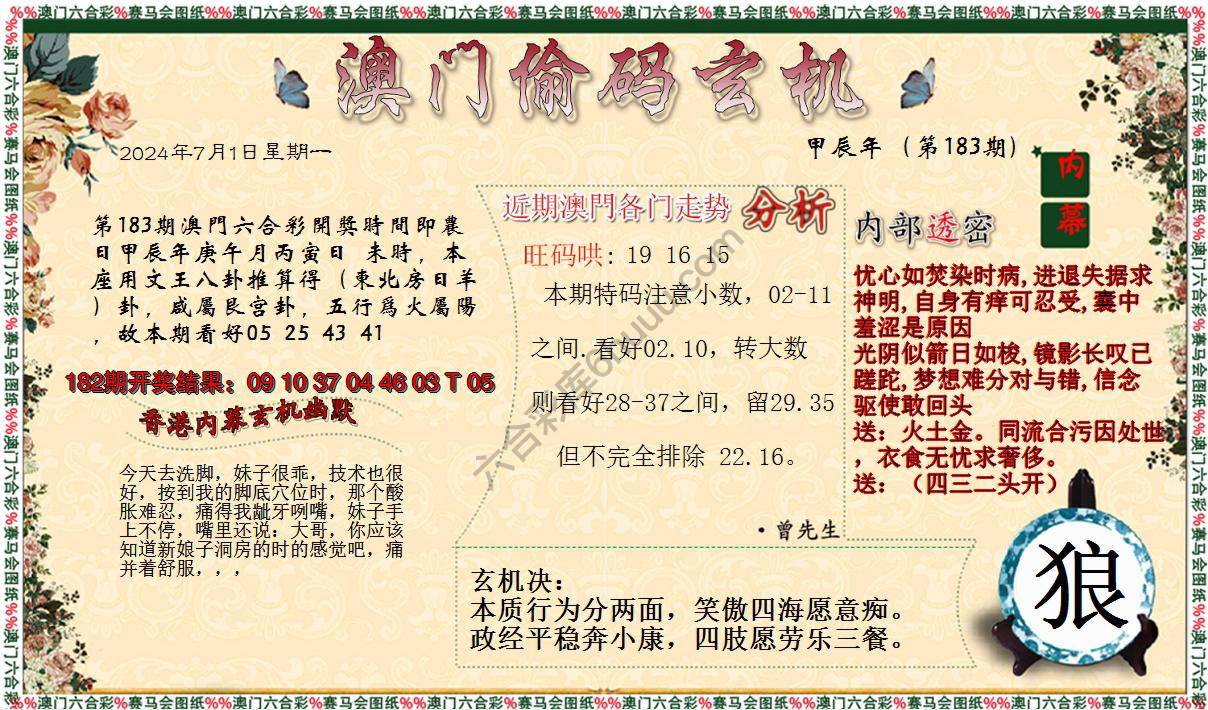 %%澳门六合彩%赛马会图纸%%澳门六合彩%赛马会图纸%%澳门六合彩%赛马会图纸%%澳门六合彩%赛马会图纸
澳门偷码玄机
2024年7月1日星期一
甲辰年（第183期）
内幕
第183期澳門六合彩開獎時間即農
日甲辰年庚午月丙寅日 未時，本
座用文王八卦推算得（東北房日羊
）卦，咸屬艮宫卦，五行爲火屬陽
，故本期看好05 25 43 41
182期开奖结果：09 10 37 04 46 03 T 05
香港内幕玄机幽默
今天去洗脚，妹子很乖，技术也很
好，按到我的脚底穴位时，那个酸
胀难忍，痛得我龇牙咧嘴，妹子手
上不停，嘴里还说：大哥，你应该
知道新娘子洞房的时的感觉吧，痛
并着舒服，，，
近期澳門各门走势 分析
旺码哄: 19 16 15
本期特码注意小数，02-11
之间.看好02.10，转大数
则看好28-37之间，留29.35
但不完全排除 22.16。
·曾先生
内部透密
忧心如焚染时病,进退失据求
神明,自身有痒可忍受,囊中
羞涩是原因
光阴似箭日如梭,镜影长叹已
蹉跎,梦想难分对与错,信念
驱使敢回头
送：火土金。同流合污因处世
，衣食无忧求奢侈。
送：（四三二头开）
玄机决：
本质行为分两面，笑傲四海愿意痴。
政经平稳奔小康，四肢愿劳乐三餐。
狼
%%澳门六合彩%赛马会图纸%%澳门六合彩%赛马会图纸%%澳门六合彩%赛马会图纸